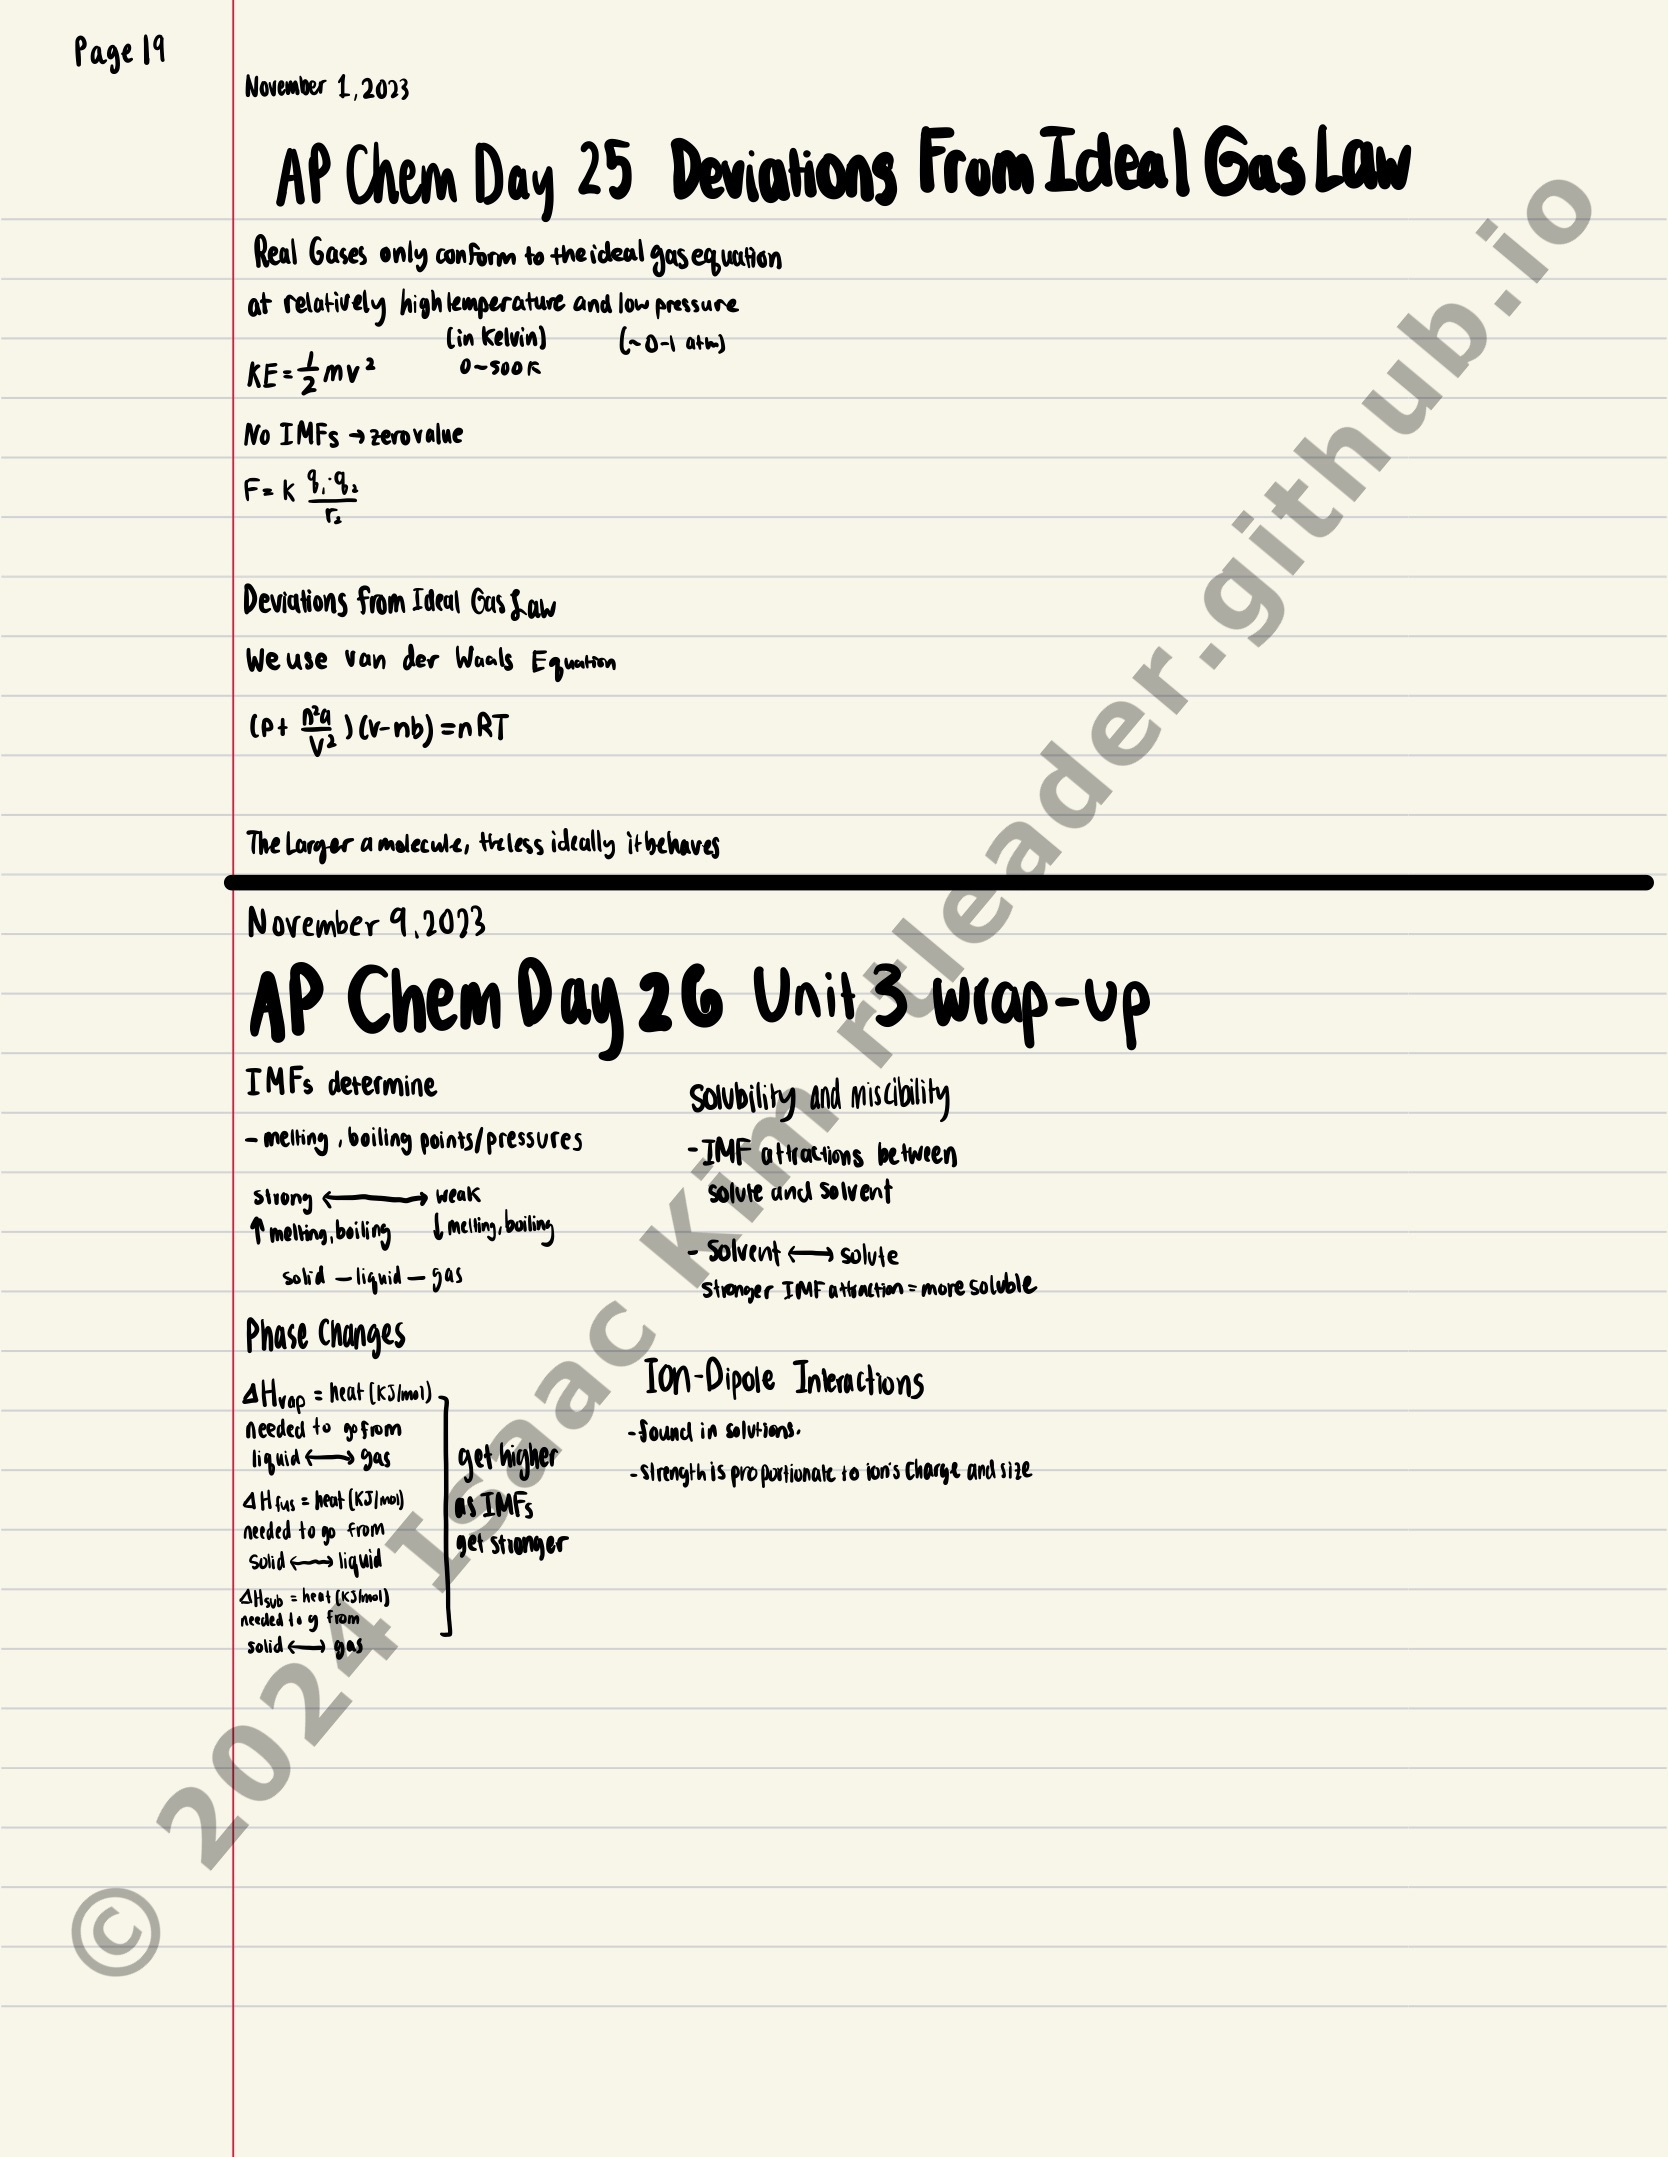 Page 19
November 1, 2023
AP Chem Day 25 Deviations From Ideal Gas Law
Real Gases only conform to the ideal gas equation
at relatively high temperature and low pressure
(in Kelvin) (~0-1 atm)
0~500K
KE = 1/2 mv²
No IMFs → zero value
F = k q₁·q₂/r₂
Deviations from Ideal Gas Law
We use van der Waals Equation
(P + n²a/V²)(V-nb) = nRT
The Larger a molecule, the less ideally it behaves
November 9, 2023
AP Chem Day 26 Unit 3 wrap-up
IMFs determine
- melting, boiling points/pressures
strong ⟷ weak
↑ melting, boiling ↓ melting, boiling
solid - liquid - gas
Phase Changes
ΔHvap = heat (KJ/mol)
needed to go from
liquid ⟷ gas
ΔHfus = heat (KJ/mol)
needed to go from
solid ⟷ liquid
ΔHsub = heat (KJ/mol)
needed to g from
solid ⟷ gas
get higher
as IMFs
get stronger
Solubility and miscibility
- IMF attractions between
solute and solvent
- Solvent ⟷ solute
stronger IMF attraction = more soluble
Ion-Dipole Interactions
- found in solutions.
- strength is proportionate to ion's charge and size
© 2024 Isaac Kim rtleader.github.io